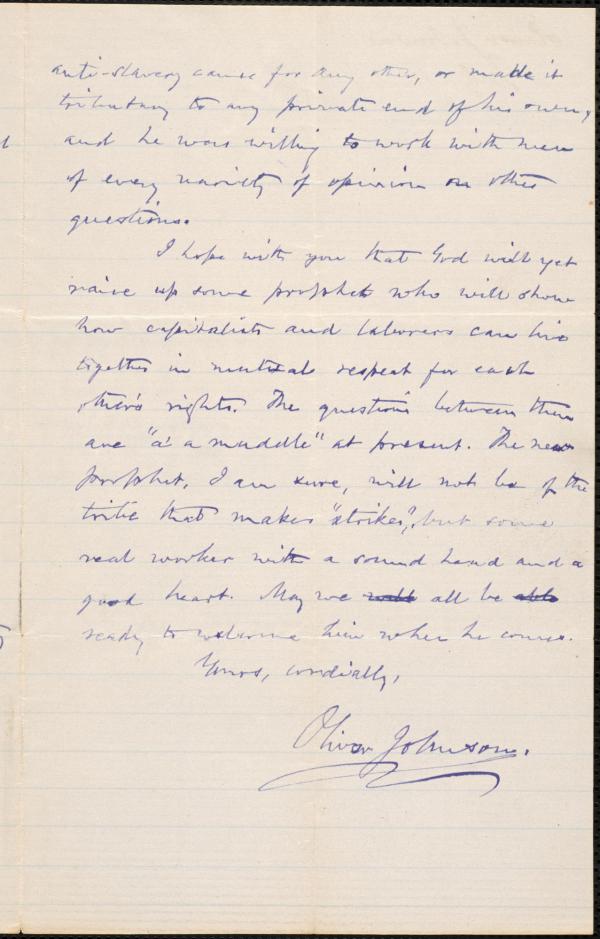 anti-slavery cause for any other, or made it
tributary to any private end of his own,
and he was willing to work with men
of every variety of opinion on other
questions.
I hope with you that God will yet
raise up some prophet who will show
how capitalists and laborers can live
together in mutual respect for each
other's rights. The questions between them
are "a' a muddle" at present. The new
prophet, I am sure, will not be of the
tribe that makes "strikes", but some
real worker with a sound head and a
good heart. May we all be
ready to welcome him when he comes.
Yours, cordially,
Oliver Johnson.